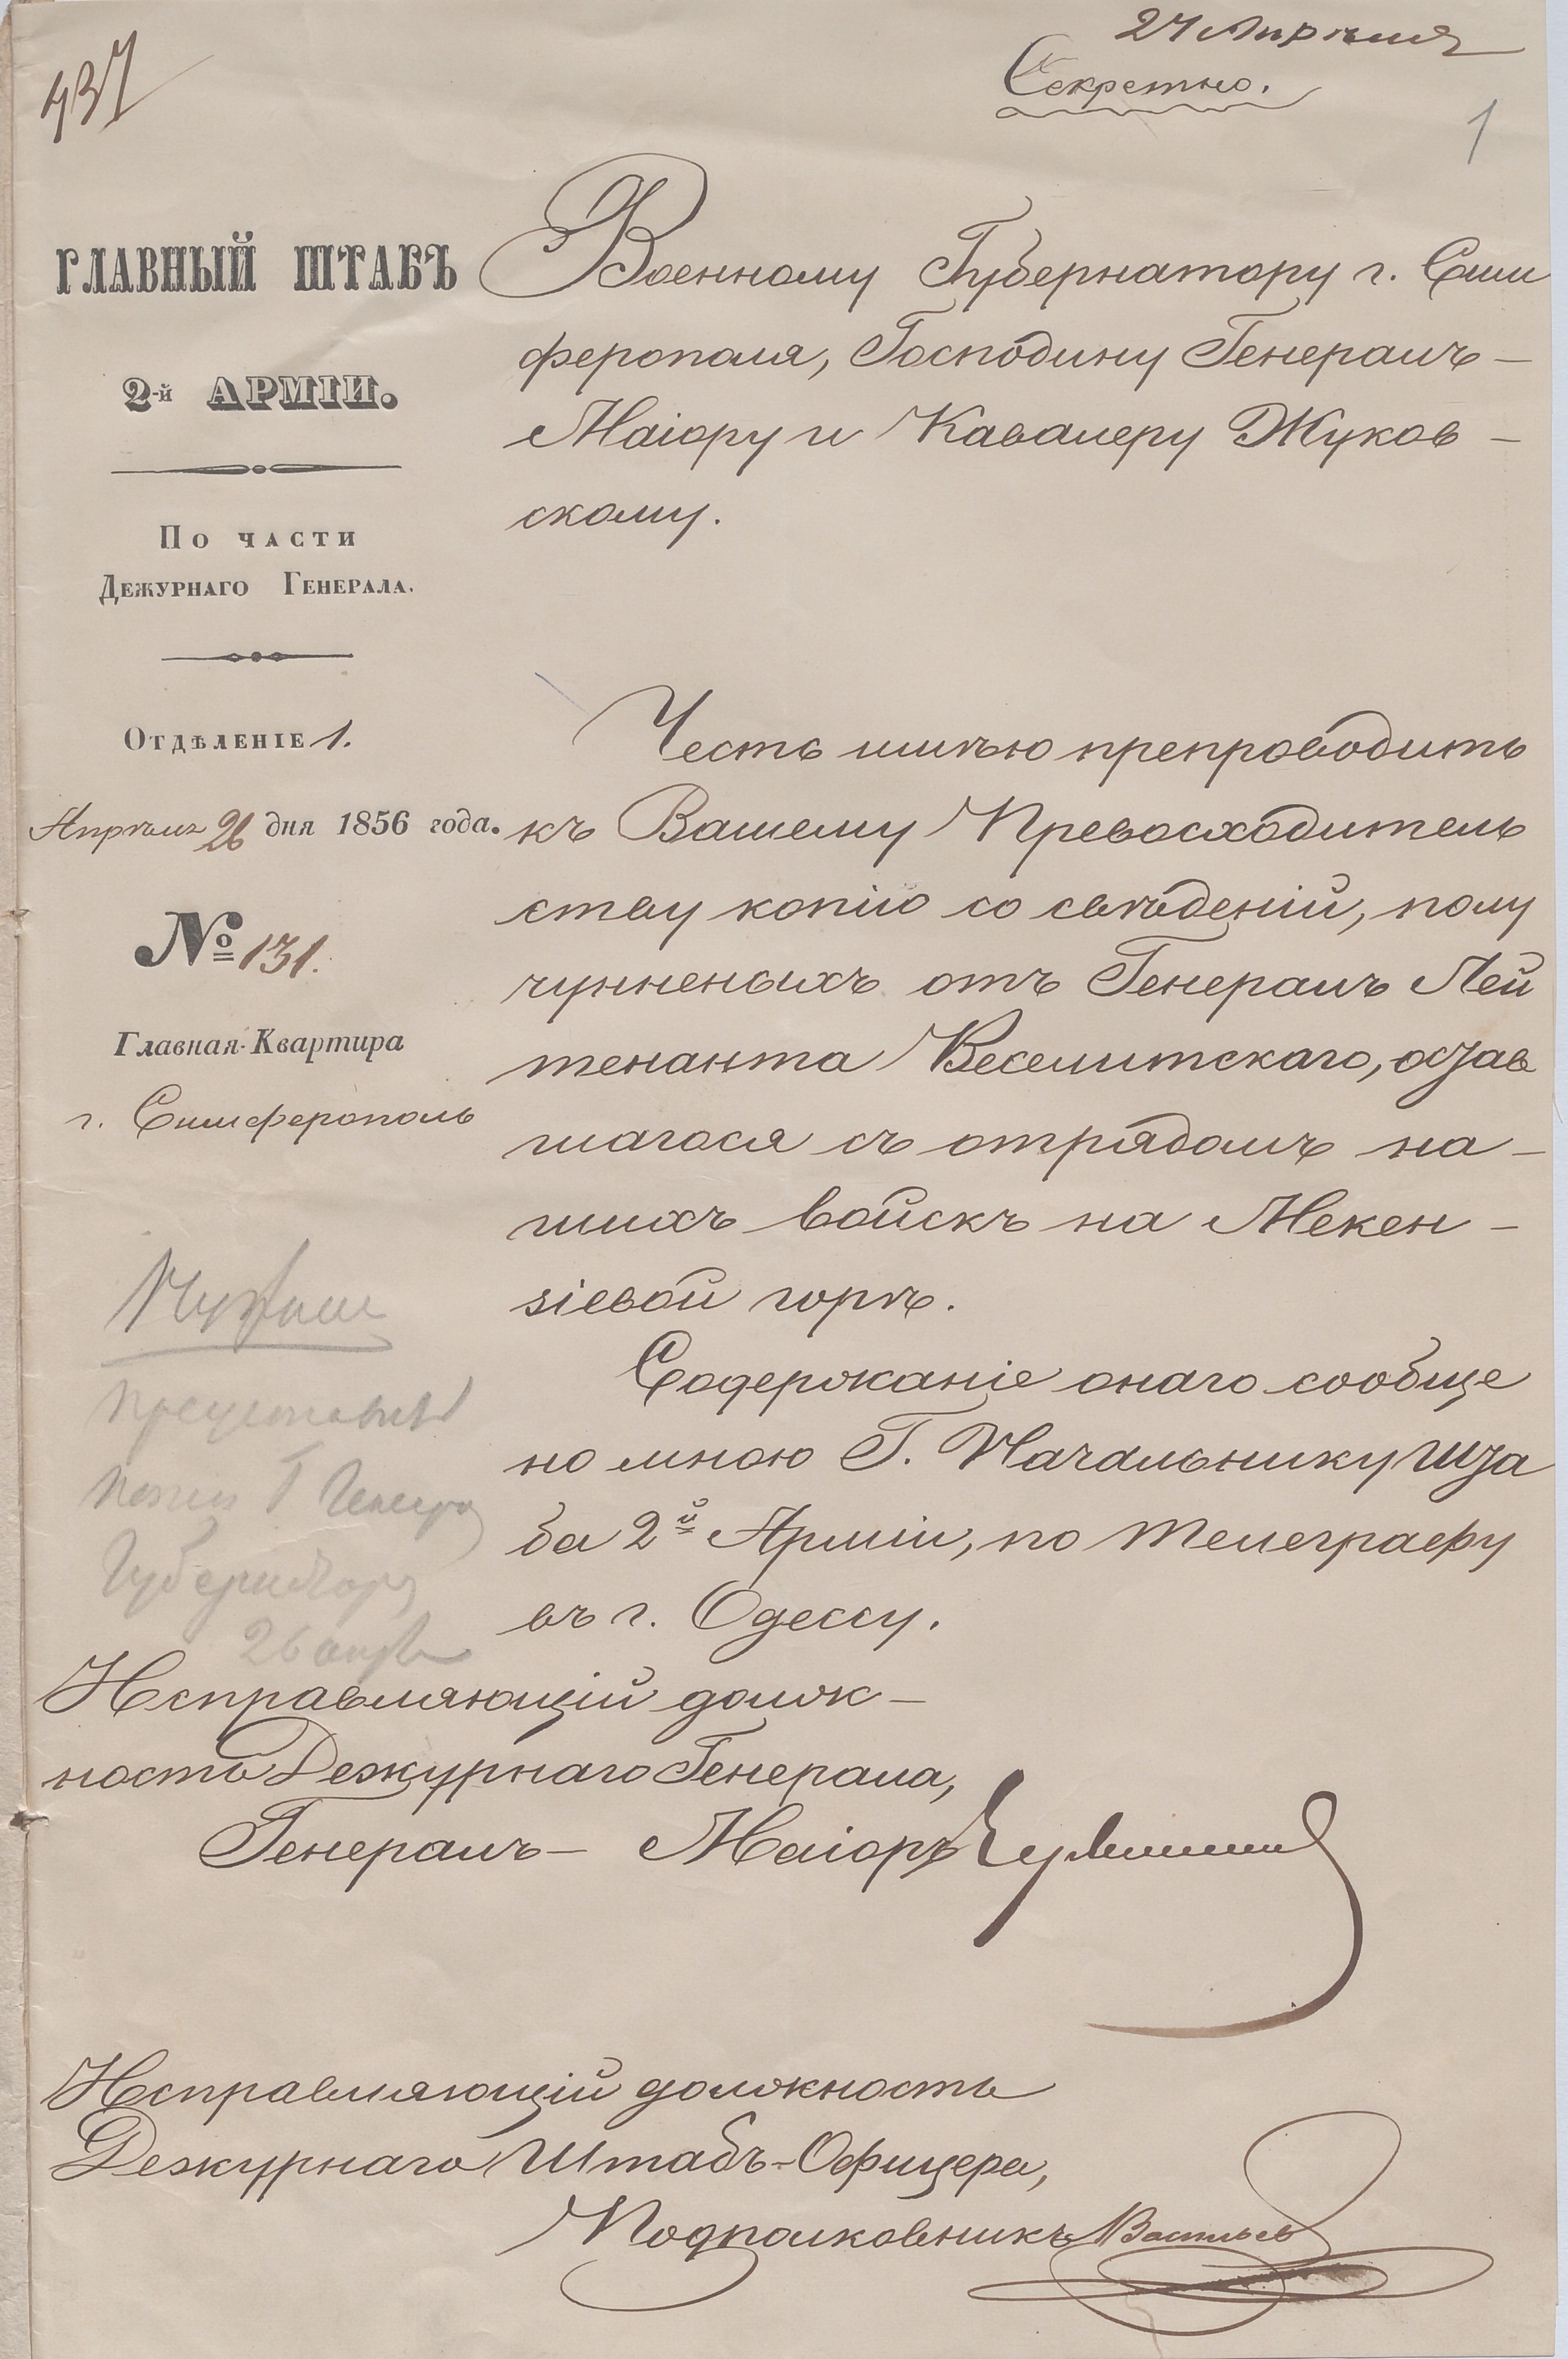 27 Апрѣля
Секретно.
937
1
ГЛАВНЫЙ ШТАБЪ
2-й АРМІИ.
По части
Дежурнаго Генерала.
Отдѣленіе 1.
Апрѣля 26 дня 1856 года.
№ 131.
Главная Квартира
г. Симферополь
Военному Губернатору г. Сим
ферополя, Господину Генералъ-
Маіору и Кавалеру Жуков-
скому.
Честь имѣю препроводить
къ Вашему Превосходитель
ству копію со свѣдѣній, полу
чунненыхъ отъ Генералъ Лей
тенанта Веселитскаго, остав
шагося съ отрядомъ на-
шихъ войскъ на Мекен-
зіевой горѣ.
Содержаніе онаго сообще
но мною Г. Начальнику Шта
ба 2й Арміи, по телеграфу
въ г. Одессу.
представить
копію Г Генер
Губернатору
26 апр
Исправляющій долж-
ность Дежурнаго Генерала,
Генералъ-Маіоръ
Исправляющій должность
Дежурнаго Штабъ-Офицера,
Подполковникъ Васильев